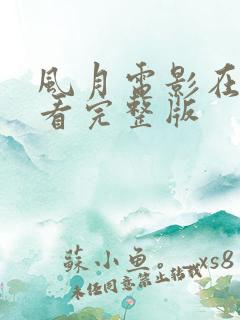 風月電影在
看完整版
蘇小魚。_xs8
未经同意禁止转载